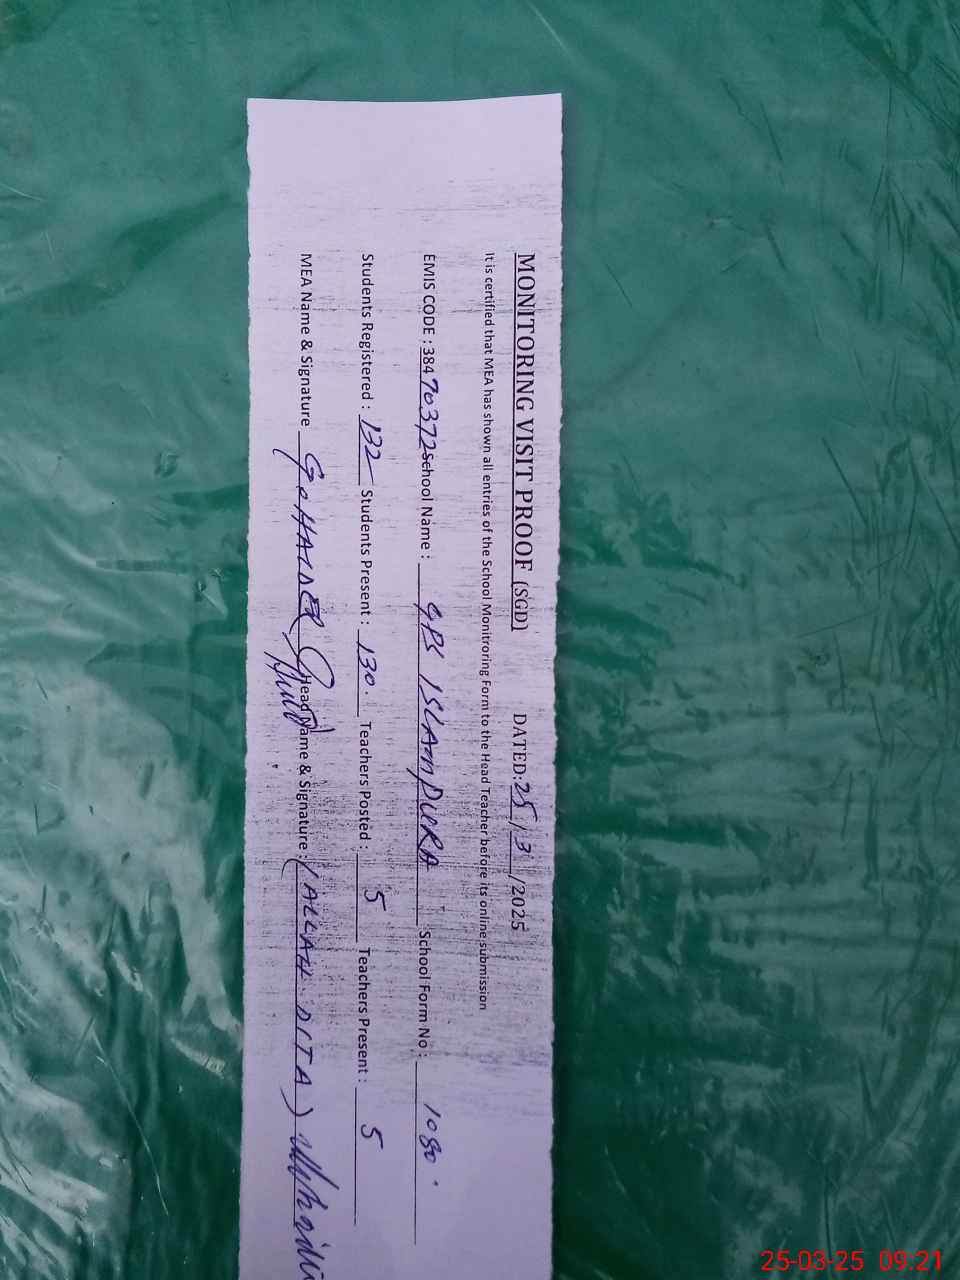 MONITORING VISIT PROOF (SGD) DATED: 25/3/2025
It is certified that MEA has shown all entries of the School Monitroring Form to the Head Teacher before its online submission
EMIS CODE : 38470372 School Name : GPS ISLAMPURA School Form No : 1080
Students Registered : 132 Students Present : 130. Teachers Posted : 5 Teachers Present : 5
MEA Name & Signature G. HAIDER Head Name & Signature : (ALLAH DITA)
25-03-25 09:21